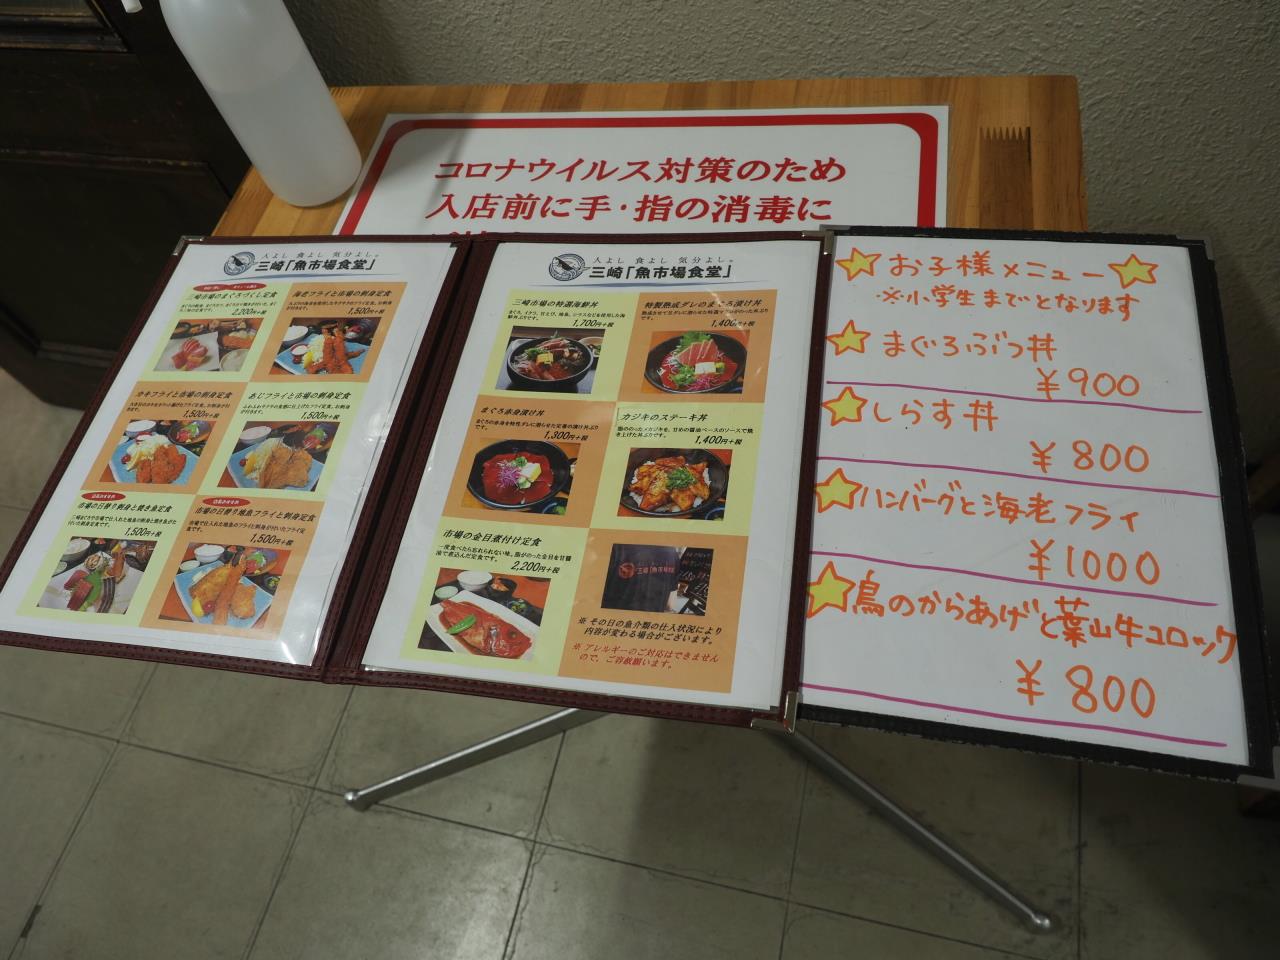 コロナウイルス対策のため
入店前に手・指の消毒に
人よし 食よし 気分よし。
三崎「魚市場食堂」
三崎市場のまぐろづくし定食
2,200円+税
海老フライと市場の刺身定食
1,500円+税
カキフライと市場の刺身定食
1,500円+税
あじフライと市場の刺身定食
1,500円+税
市場の日替り刺身と焼き魚定食
1,500円+税
市場の日替り地魚フライと刺身定食
1,500円+税
人よし 食よし 気分よし。
三崎「魚市場食堂」
三崎市場の特選海鮮丼
1,700円+税
特製熟成ダレのまぐろ漬け丼
1,400円+税
まぐろ赤身漬け丼
1,300円+税
カジキのステーキ丼
脂ののったメカジキを、甘めの醤油ベースのソースで焼
き上げた丼ぶりです。
1,400円+税
市場の金目煮付け定食
一度食べたら忘れられない味。脂がのった金目を甘醤
油で煮込んだ定食です。
2,200円+税
三崎「魚市場
※ その日の魚介類の仕入状況により
内容が変わる場合がございます。
※ アレルギーのご対応はできません
ので、ご容赦願います。
お子様メニュー
※小学生までとなります
まぐろぶつ丼
¥900
しらす丼
¥800
ハンバーグと海老フライ
¥1000
鳥のからあげと葉山牛コロッケ
¥800